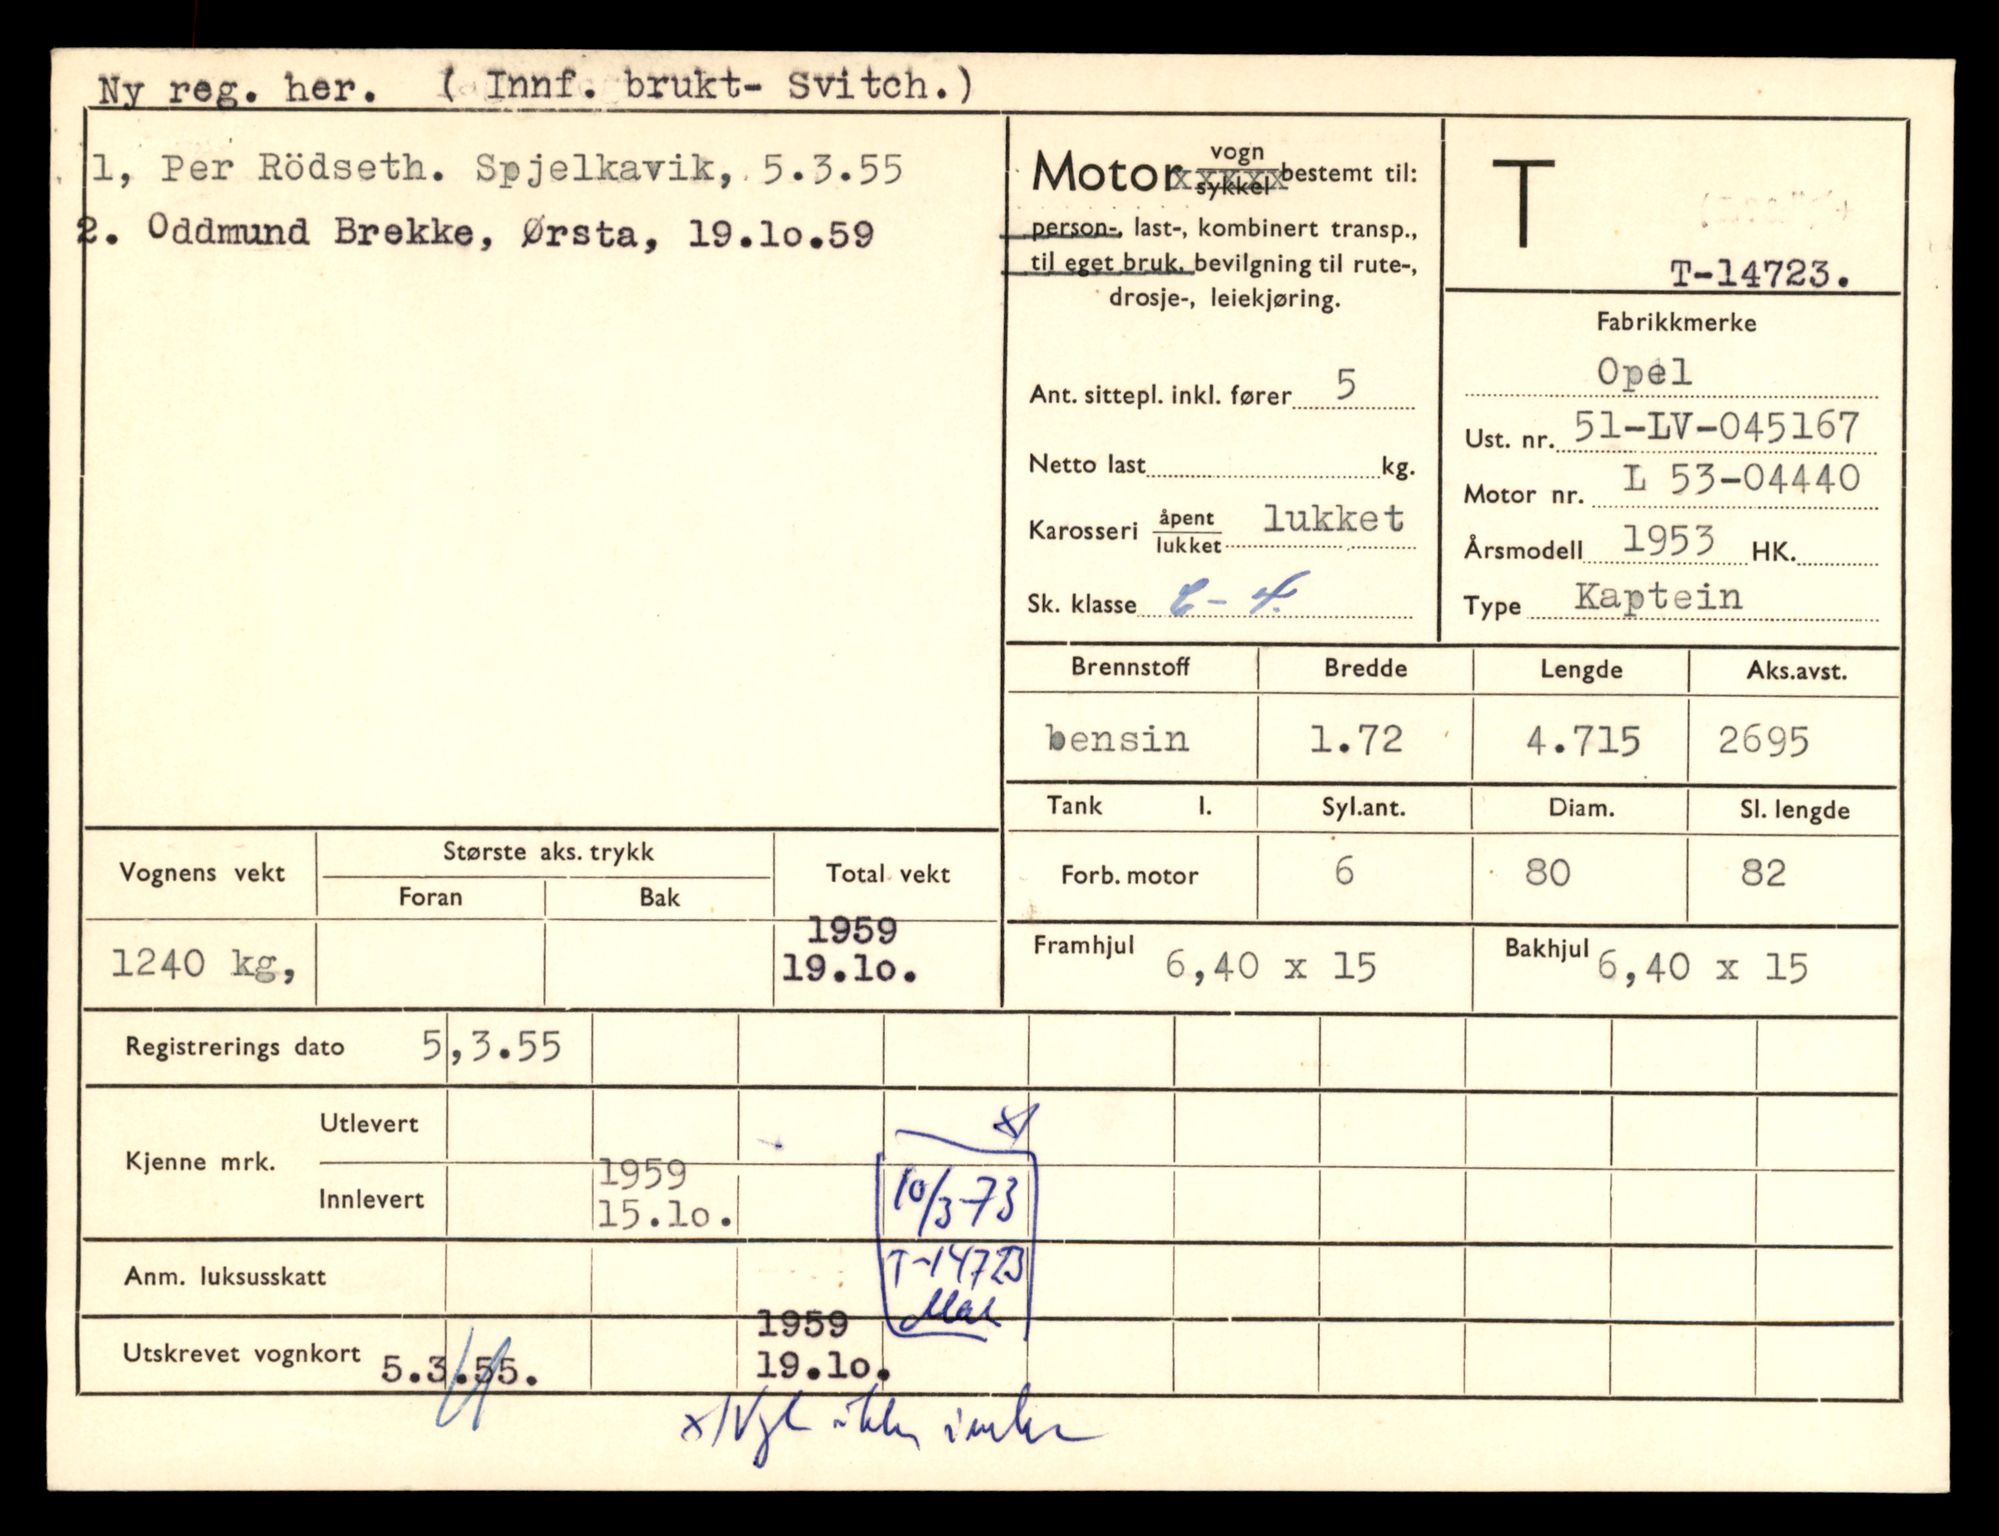 Ny reg. her. ( Innf. brukt- Svitch.)
1, Per Rödseth. Spjelkavik, 5.3.55
2. Oddmund Brekke, Ørsta, 19.lo.59
Motor vogn sykkel bestemt til:
person-, last-, kombinert transp.,
til eget bruk. bevilgning til rute-,
drosje-, leiekjøring.
Ant. sittepl. inkl. fører 5
Netto last kg.
Karosseri åpent lukket lukket
Sk. klasse
T
T-14723.
Fabrikkmerke
Opel
Ust. nr. 51-LV-045167
Motor nr. L 53-04440
Årsmodell 1953 HK.
Type Kaptein
Brennstoff Bredde Lengde Aks.avst.
bensin 1.72 4.715 2695
Tank l. Syl.ant. Diam. Sl. lengde
Forb. motor 6 80 82
Framhjul 6,40 x 15 Bakhjul 6,40 x 15
Vognens vekt Største aks. trykk Total vekt
Foran Bak
1240 kg, 1959
19.lo.
Registrerings dato 5,3.55
Kjenne mrk. Utlevert
Innlevert 1959
15.lo.
10/3-73
T-14723
Anm. luksusskatt
Utskrevet vognkort 5.3.55. 1959
19.lo.
x) Vgk ikke innlev